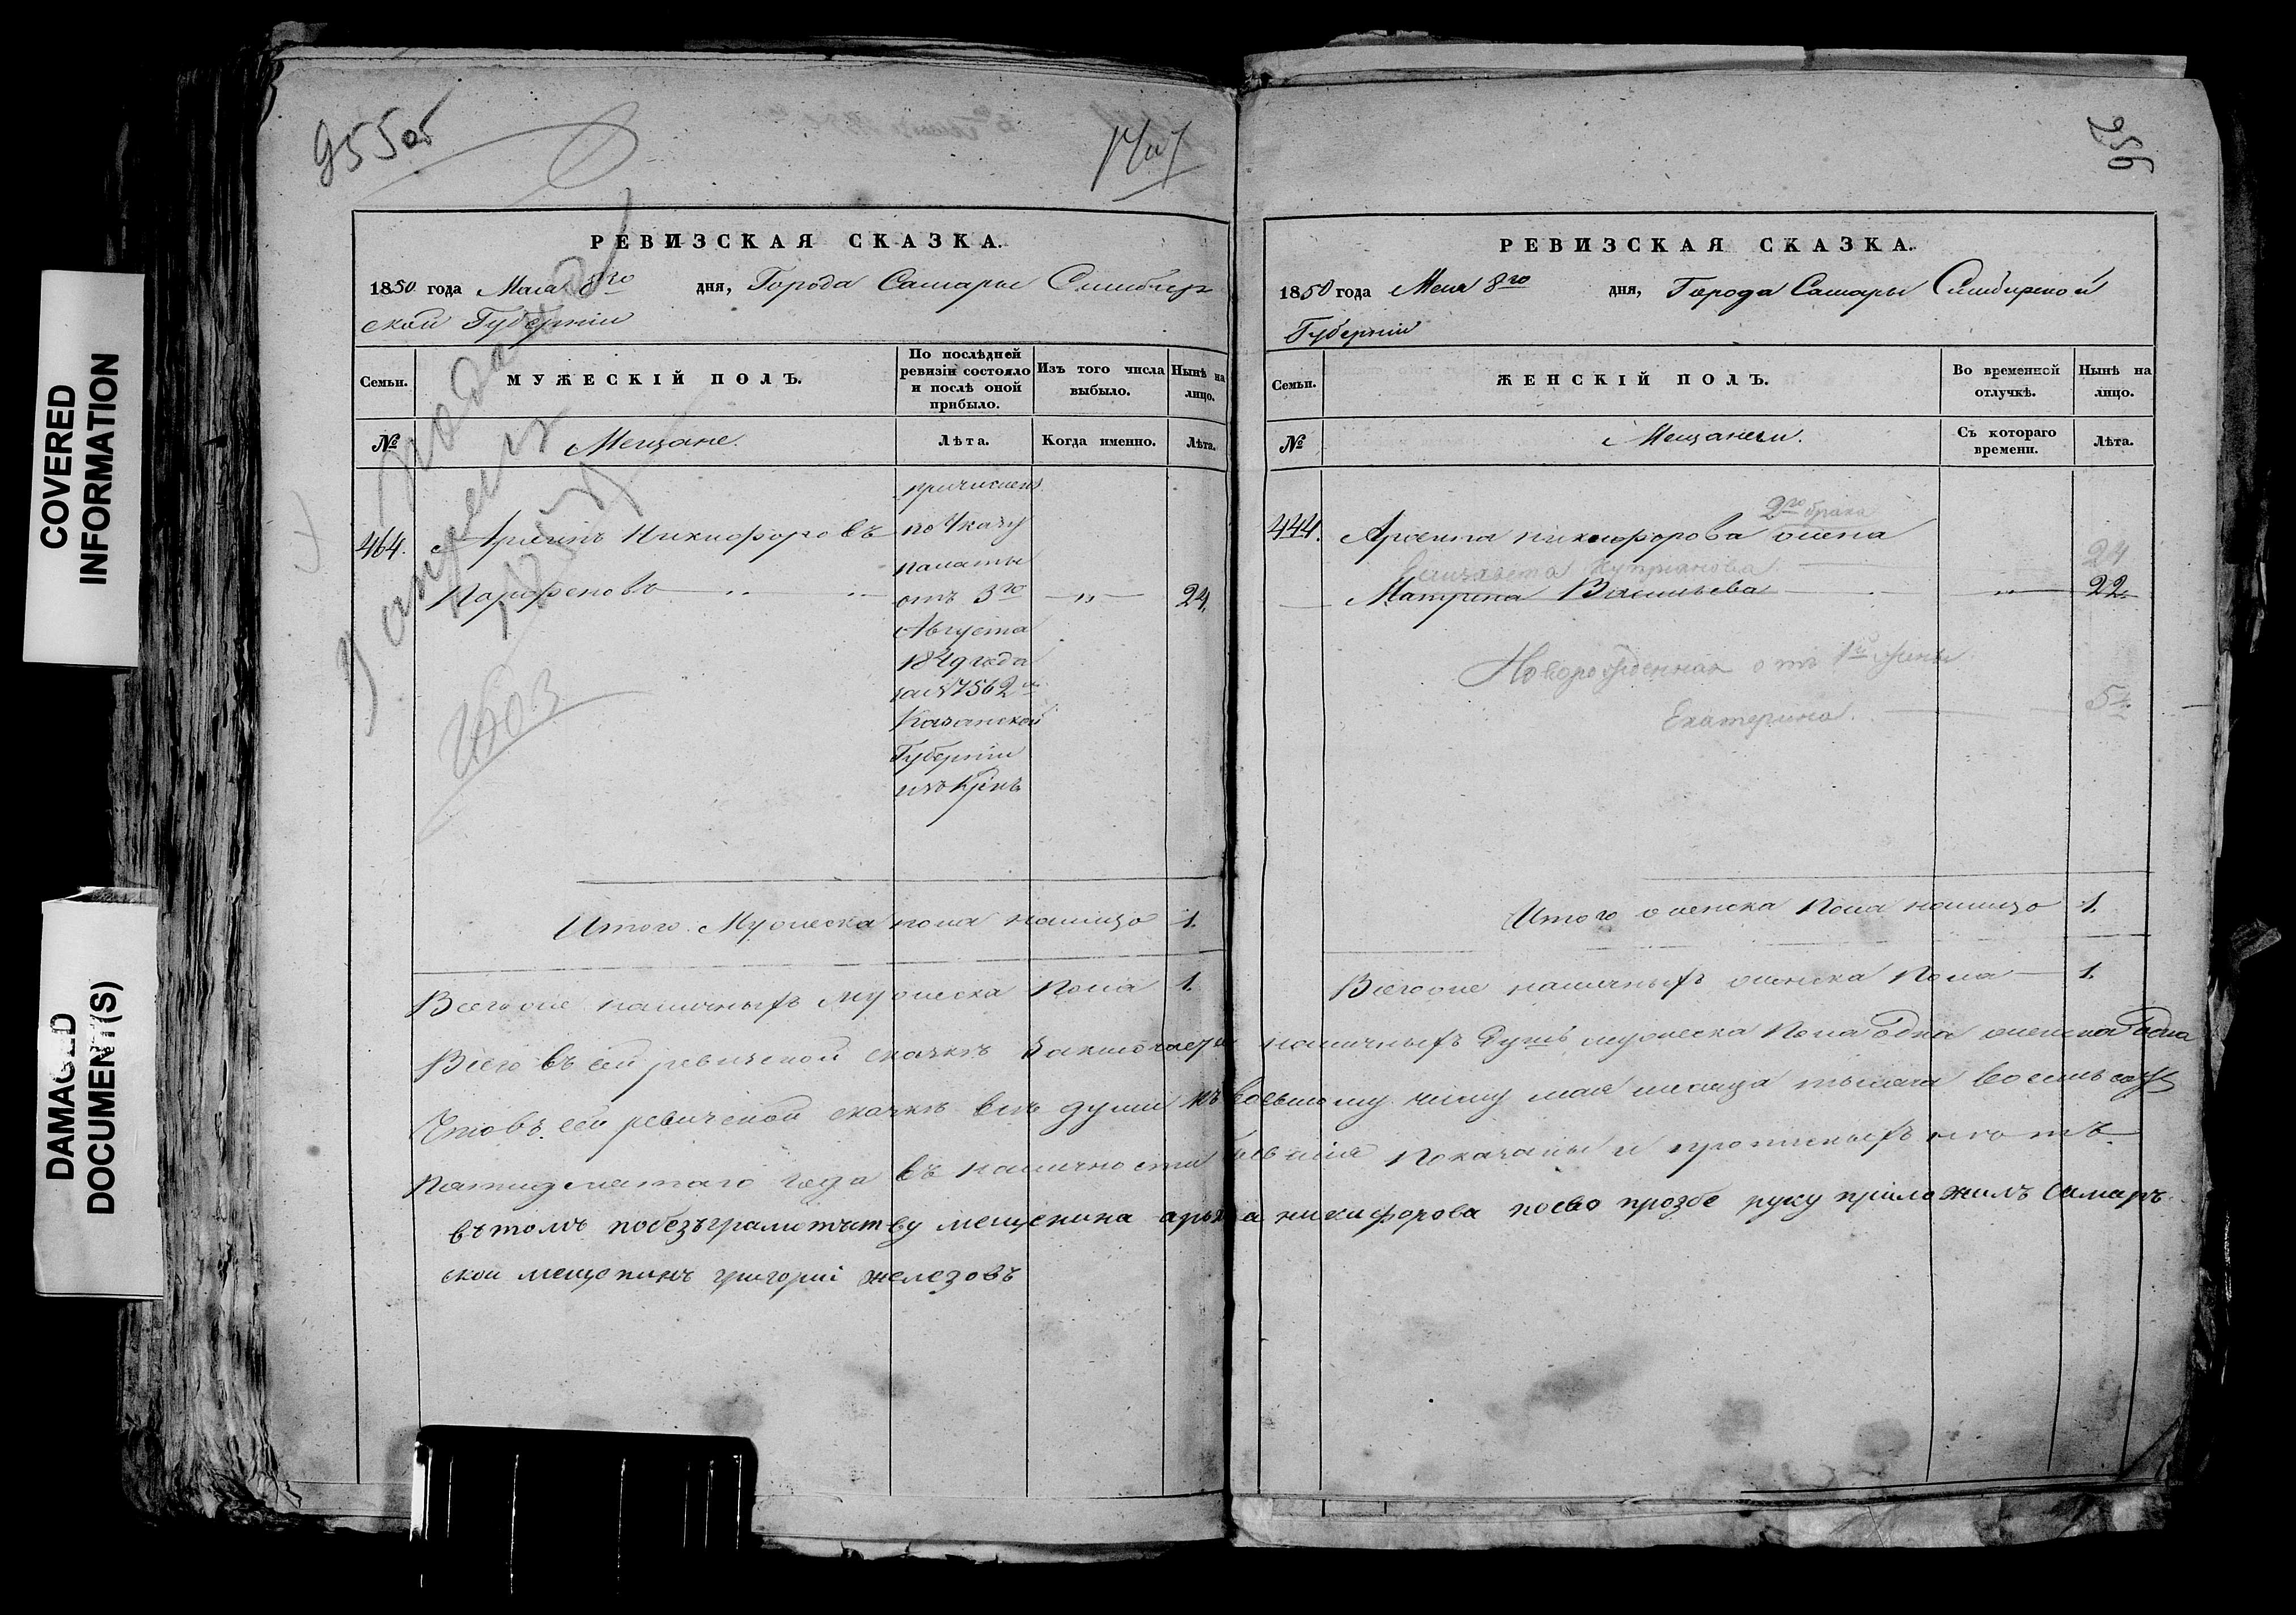 COVERED
INFORMATION
DAMAGED
DOCUMENT(S)
955об
РЕВИЗСКАЯ СКАЗКА.
1850 года Мая 8го дня, Города Самары Симбир
ской Губернiи
Семьи.
МУЖЕСКIЙ ПОЛЪ.
По послѣдней ревизiи состояло и послѣ оной прибыло.
Изъ того числа выбыло.
Нынѣ на лицо.
№
Мещане.
Лѣта.
Когда именно.
Лѣта.
464.
Никифоровъ
Парфеновъ
24.
причисленъ
по Указу
палаты
отъ 3го
Августа
1849 года
за №7562м
Казанской
Губернiи
изъ
Итого Мужеска пола налицо 1.
Всего же наличныхъ мужеска пола 1.
956
РЕВИЗСКАЯ СКАЗКА.
1850 года Мая 8го дня, Города Самары Симбирской
Губернiи
Семьи.
ЖЕНСКIЙ ПОЛЪ.
Во временной отлучкѣ.
Нынѣ на лицо.
№
Мещанки.
Съ котораго времени.
Лѣта.
444.
2го брака
никифорова жена
Елизавета Куприанова 24
Матрина Васильева 22
Новорожденная отъ 1й жены
Екатерина.
Итого женска пола налицо 1.
Всего же наличныхъ женска пола 1.
Всего въ сей ревизской сказкѣ заключается наличныхъ душъ мужеска пола одна женска одна
Что въ сей ревизской сказкѣ всѣ души къ восьмому числу мая месяца тысяча восемь сотъ
пятидесятаго года въ наличности бывшiя показаны и прописныхъ нѣтъ
въ томъ побезъграмотъству мещенина никифорова поево прозбе руку приложилъ самаръ
ской мещенинъ григорiй железовъ